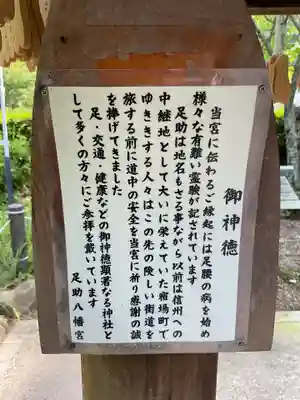 御神徳
当宮に伝わるご縁起には足腰の病を始め
様々な有難い霊験が記されています
足助は地名もさる事ながら以前は信州への
中継地として大いに栄えていた宿場町で
ゆききする人々はこの先の険しい街道を
旅する前に道中の安全を当宮に祈り感謝の誠
を捧げてきました
足・交通・健康などの御神徳顕著なる神社と
して多くの方々にご参拝を戴いています
足助八幡宮